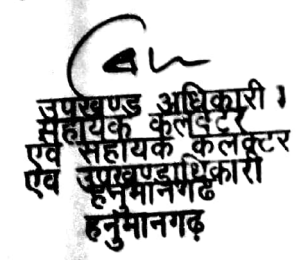 उपखण्ड अधिकारी
सहायक कलेक्टर
एवं सहायक कलक्टर
एवं उपखण्डाधिकारी
हनुमानगढ
हनुमानगढ़